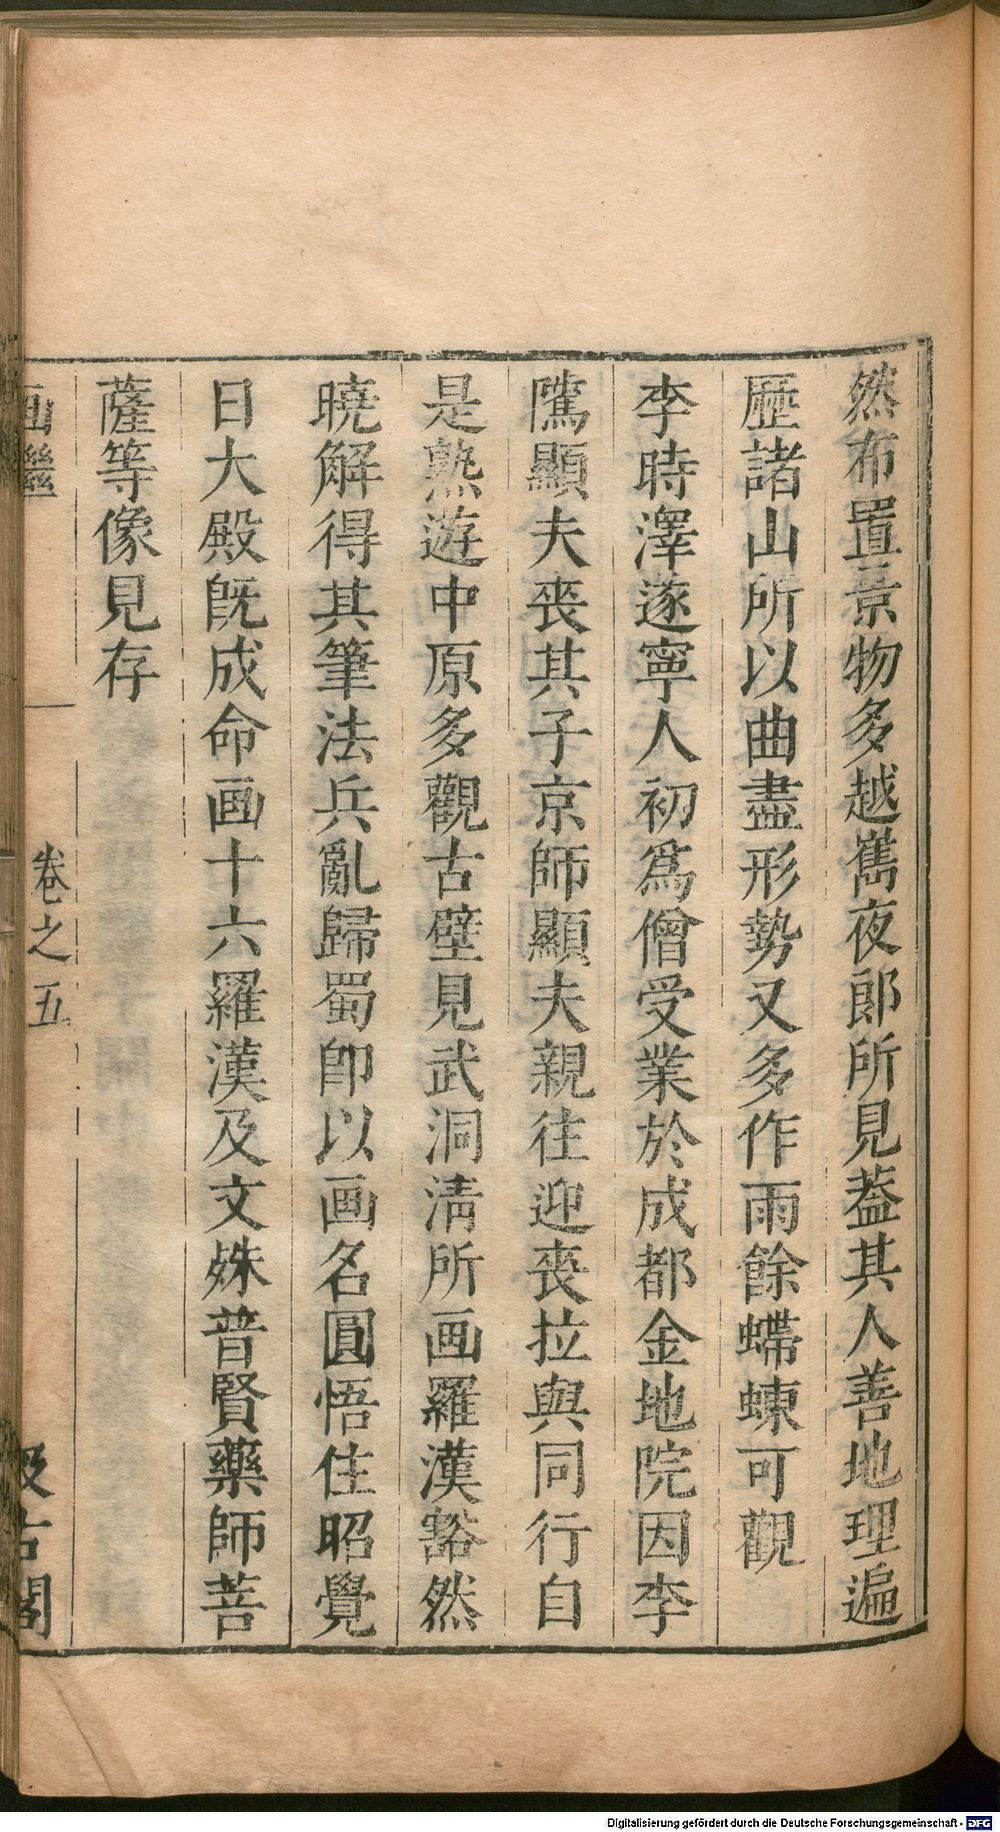 然布置景物多越嶲夜郎所見葢其人善地理遍
歴諸山所以曲盡形勢又多作雨餘蝃蝀可觀
李時澤遂寧人初爲僧受業於成都金地院因李
隲顯夫喪其子京師顯夫親往迎喪拉與同行自
是熟遊中原多觀古壁見武洞淸所画羅漢豁然
曉解得其筆法兵亂歸蜀即以画名圓悟住昭覺
日大殿旣成命画十六羅漢及文殊普賢藥師菩
薩等像見存
画繼 卷之五 汲古閣
Digitalisierung gefördert durch die Deutsche Forschungsgemeinschaft - DFG